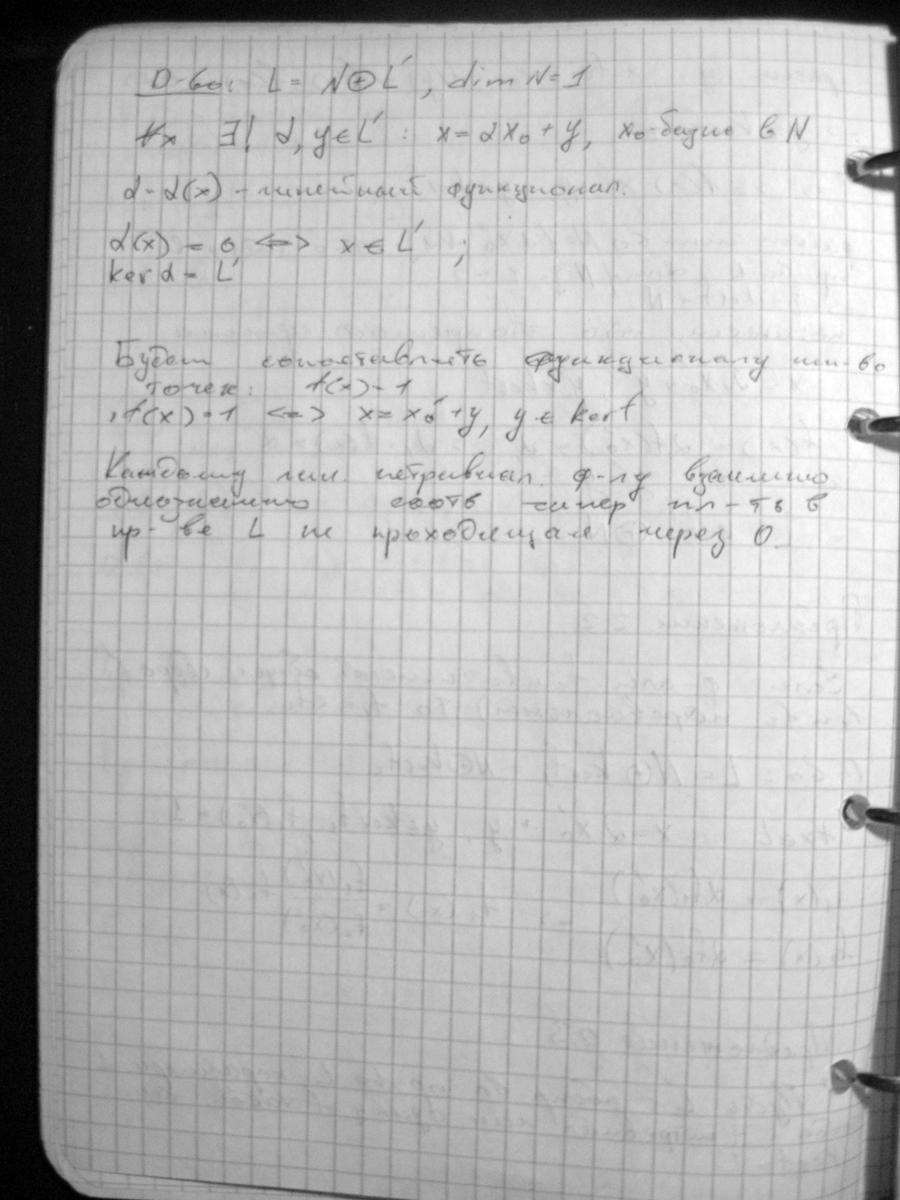 Д-во: L = N⊕L', dim N = 1
∀x ∃! α, y∈L' : x = αx₀ + y, x₀-базис в N
α = α(x) - линейный функционал.
α(x) = 0 <=> x ∈ L' ;
ker α = L'
Будем сопоставлять функционалу мн-во
точек: f(x) = 1
f(x) = 1 <=> x = x₀' + y, y ∈ ker f
Каждому лин. нетривиал. ф-лу взаимно
однозначно соотв гипер пл-ть в
пр-ве L не проходящая через 0.